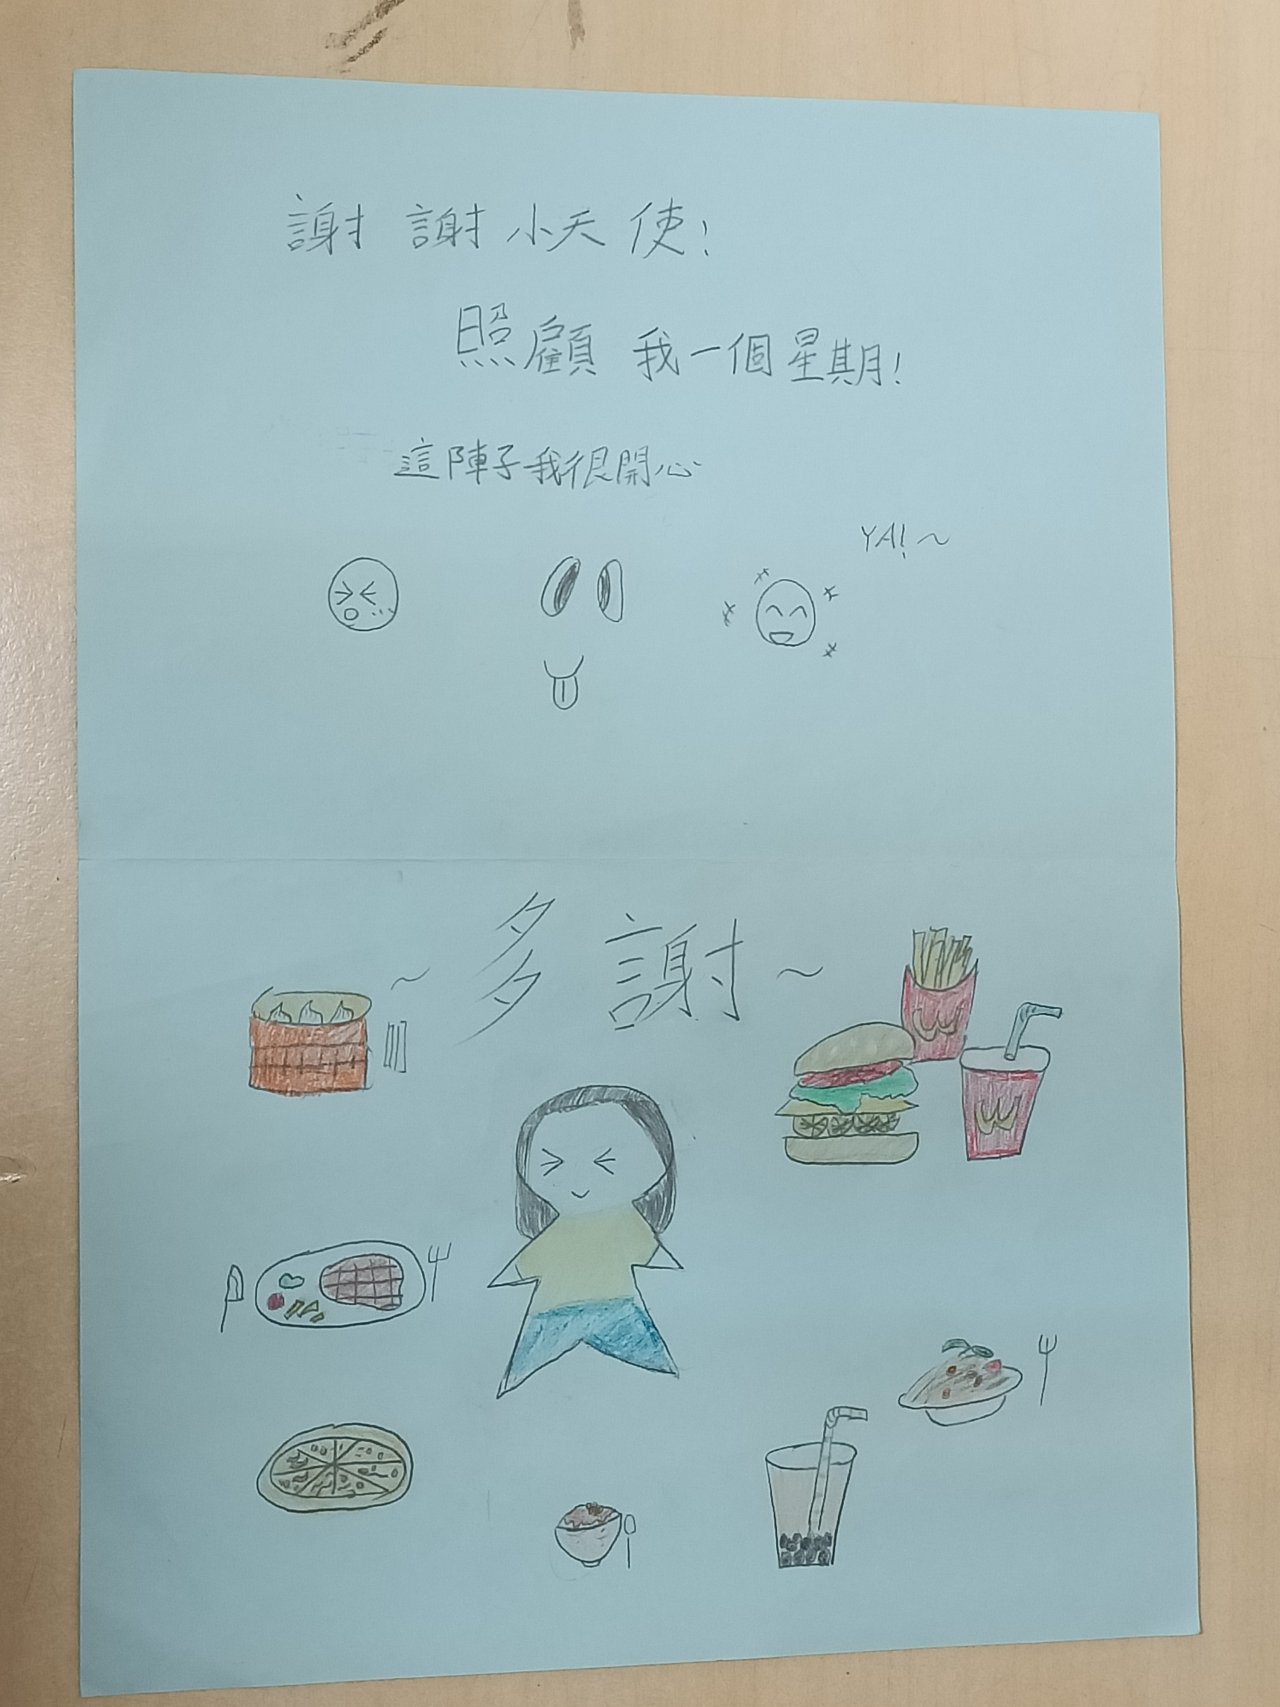 謝謝小天使!
照顧我一個星期!
這陣子我很開心
YA!~
~多謝~